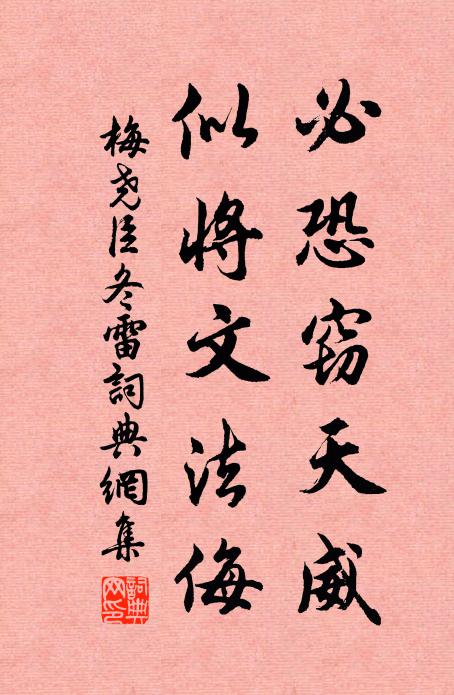 必恐窃天威
似将文法侮
梅尧臣冬雷詞典網集
詞典网印